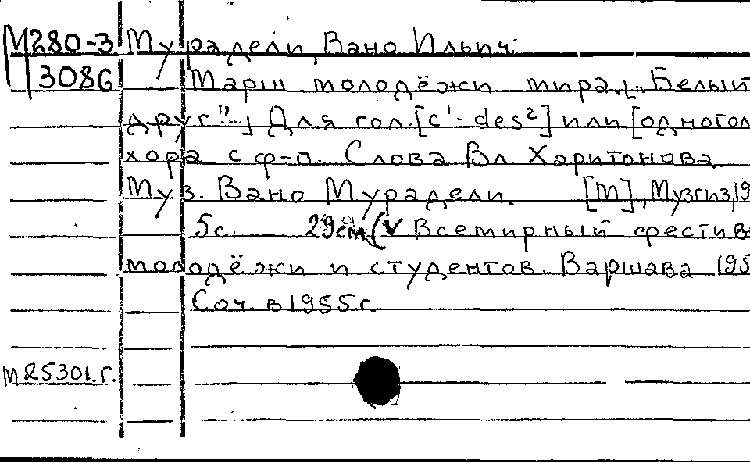 М280-3 Мурадели, Вано Ильич.
3086 Марш молодёжи мира „Белый
друг"... Для гол. [c¹-des²] или [одногол
хора с ф-п. Слова Вл. Харитонова.
Муз. Вано Мурадели. [М], Музгиз, 19
5с. 29см (V Всемирный фестива
молодёжи и студентов. Варшава 195
Соч. в 1955г.
М25301г.